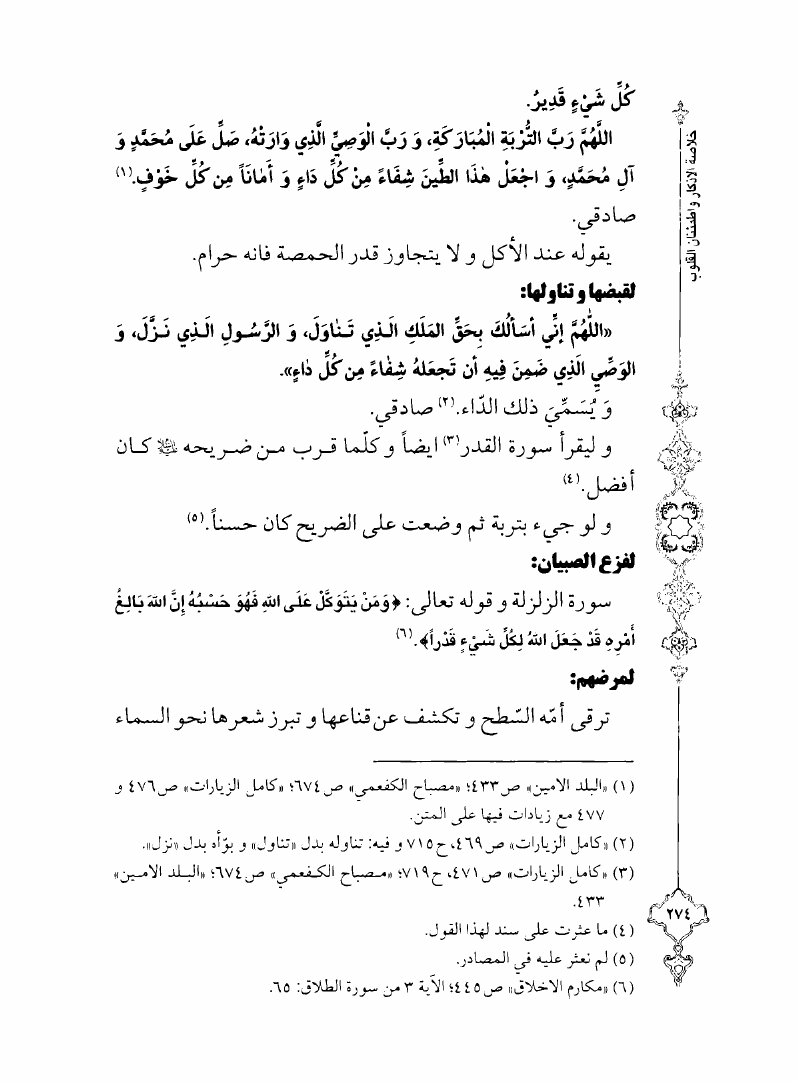 خلاصة الاذكار واطمئنان القلوب
كُلِّ شَيْءٍ قَدِيرٌ.
اللَّهُمَّ رَبَّ التُّرْبَةِ الْمُبَارَكَةِ، وَ رَبَّ الْوَصِيِّ الَّذِي وَارَتْهُ، صَلِّ عَلَى مُحَمَّدٍ وَ
آلِ مُحَمَّدٍ، وَ اجْعَلْ هٰذَا الطِّينَ شِفَاءً مِنْ كُلِّ دَاءٍ وَ أَمَاناً مِن كُلِّ خَوْفٍ.(١)
صادقي.
يقوله عند الأكل و لا يتجاوز قدر الحمصة فانه حرام.
لقبضها و تناولها:
«اللّٰهُمَّ إنِّي أسَألُكَ بِحَقِّ المَلَكِ الَّذِي تَنٰاوَلَ، وَ الرَّسُولِ الَّذِي نَزَّلَ، وَ
الوَصِّيِ الَّذِي ضَمِنَ فِيهِ أن تَجعَلهُ شِفٰاءً مِن كُلِّ دٰاءٍ».
وَ يُسَمِّيَ ذلك الدّاء.(٢) صادقي.
و ليقرأ سورة القدر(٣) ايضاً و كلّما قرب من ضريحه ﷺ كان
أفضل.(٤)
و لو جيء بتربة ثم وضعت على الضريح كان حسناً.(٥)
لفزع الصبيان:
سورة الزلزلة و قوله تعالى: ﴿وَمَنْ يَتَوَكَّلْ عَلَى اللهِ فَهُوَ حَسْبُهُ إِنَّ اللهَ بَالِغُ
أَمْرِهِ قَدْ جَعَلَ اللهُ لِكُلِّ شَيْءٍ قَدْراً﴾.(٦)
لمرضهم:
ترقى أمّه السّطح و تكشف عن قناعها و تبرز شعرها نحو السماء
(١) «البلد الامين» ص٤٣٣؛ «مصباح الكفعمي» ص٦٧٤؛ «كامل الزيارات» ص٤٧٦ و
٤٧٧ مع زيادات فيها على المتن.
(٢) «كامل الزيارات» ص٤٦٩، ح٧١٥ و فيه: تناوله بدل «تناول» و بوّأه بدل «نزل».
(٣) «كامل الزيارات» ص٤٧١، ح٧١٩؛ «مصباح الكفعمي» ص٦٧٤؛ «البلد الامين»
٤٣٣.
(٤) ما عثرت على سند لهذا القول.
(٥) لم نعثر عليه في المصادر.
(٦) «مكارم الاخلاق» ص٤٤٥؛ الآية ٣ من سورة الطلاق: ٦٥.
٢٧٤